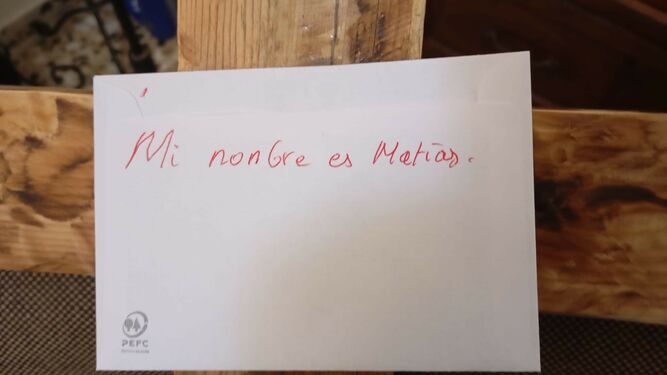 Mi nonbre es Matías.
PEFC